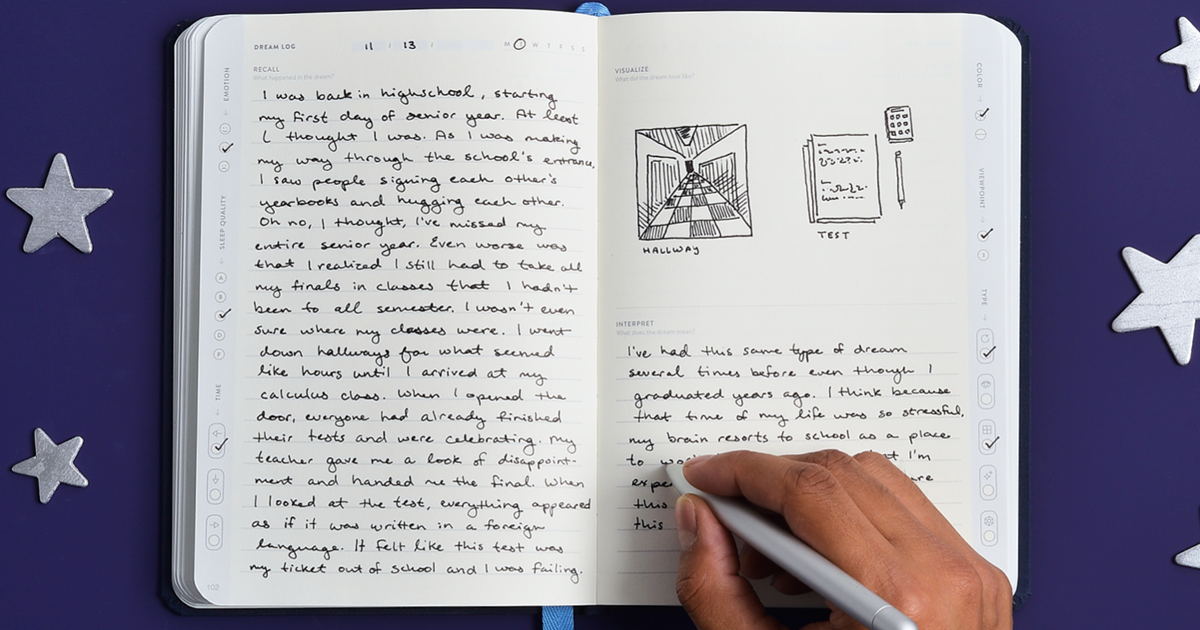 DREAM LOG
11 / 13 /
M T W T F S S
RECALL
What happened in the dream?
I was back in highschool, starting
my first day of senior year. At least
I thought I was. As I was making
my way through the school's entrance,
I saw people signing each other's
yearbooks and hugging each other.
Oh no, I thought, I've missed my
entire senior year. Even worse was
that I realized I still had to take all
my finals in classes that I hadn't
been to all semester. I wasn't even
sure where my classes were. I went
down hallways for what seemed
like hours until I arrived at my
calculus class. When I opened the
door, everyone had already finished
their tests and were celebrating. My
teacher gave me a look of disappoint-
ment and handed me the final. When
I looked at the test, everything appeared
as if it was written in a foreign
language. It felt like this test was
my ticket out of school and I was failing.
102
EMOTION
SLEEP QUALITY
A
B
D
F
TIME
VISUALIZE
What did the dream look like?
HALLWAY
TEST
INTERPRET
What does the dream mean?
I've had this same type of dream
several times before even though I
graduated years ago. I think because
that time of my life was so stressful,
my brain resorts to school as a place
to I'm
this
this
COLOR
VIEWPOINT
TYPE